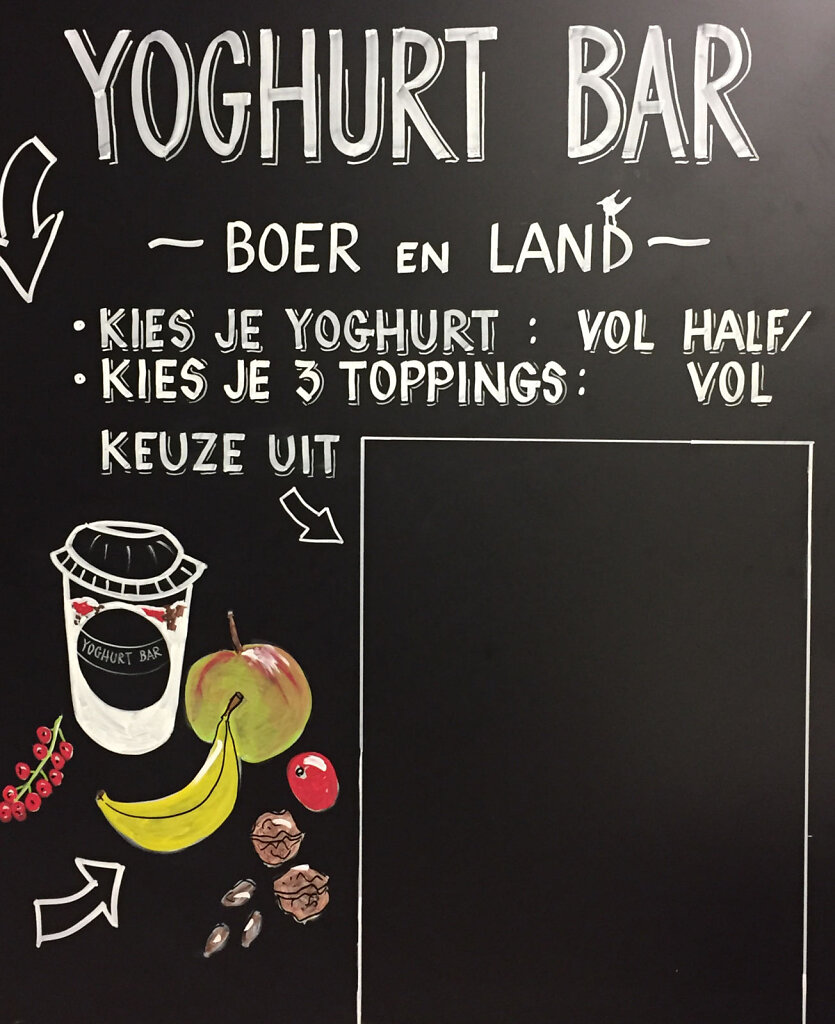 YOGHURT BAR
~ BOER EN LAND ~
• KIES JE YOGHURT : VOL HALF/
• KIES JE 3 TOPPINGS: VOL
KEUZE UIT
YOGHURT BAR